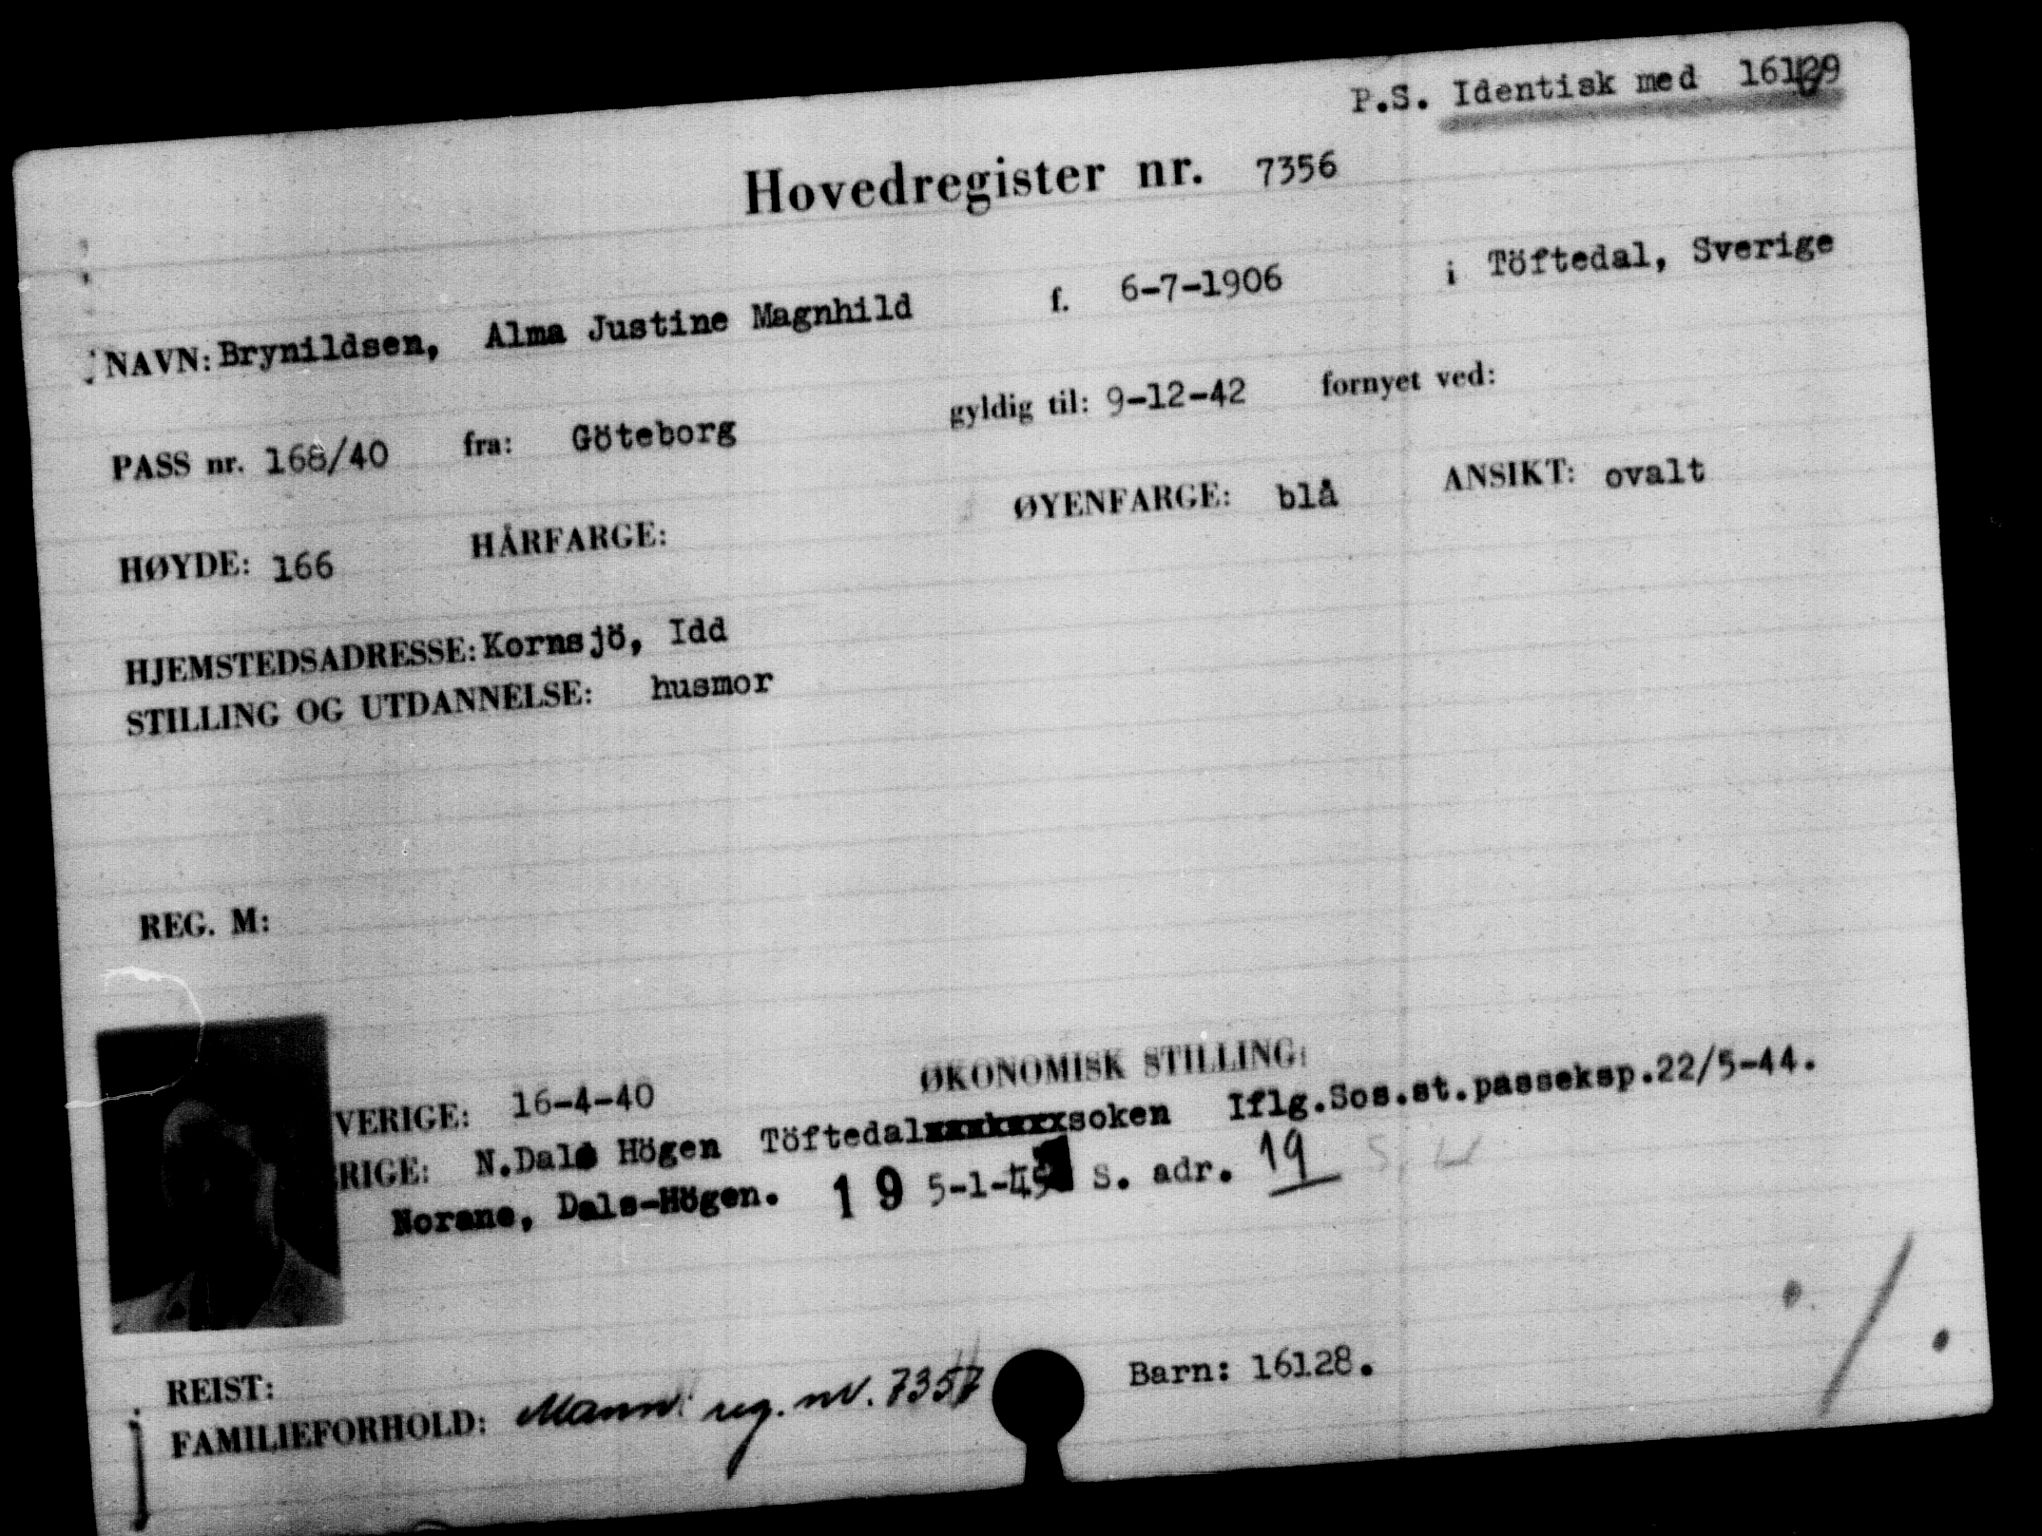 P.S. Identisk med 16129
Hovedregister nr. 7356
NAVN: Brynildsen, Alma Justine Magnhild f. 6-7-1906 i Töftedal, Sverige
PASS nr. 168/40 fra: Göteborg gyldig til: 9-12-42 fornyet ved:
HØYDE: 166 HÅRFARGE: ØYENFARGE: blå ANSIKT: ovalt
HJEMSTEDSADRESSE: Kornsjö, Idd
STILLING OG UTDANNELSE: husmor
REG. M:
VERIGE: 16-4-40 ØKONOMISK STILLING:
RIGE: N.Dals Högen Töftedal soken Iflg.Sos.st.passeksp.22/5-44.
Norane, Dals-Högen. 19 5-1-45 S. adr. 19
REIST:
FAMILIEFORHOLD: Mann: reg. nr. 7357 Barn: 16128.